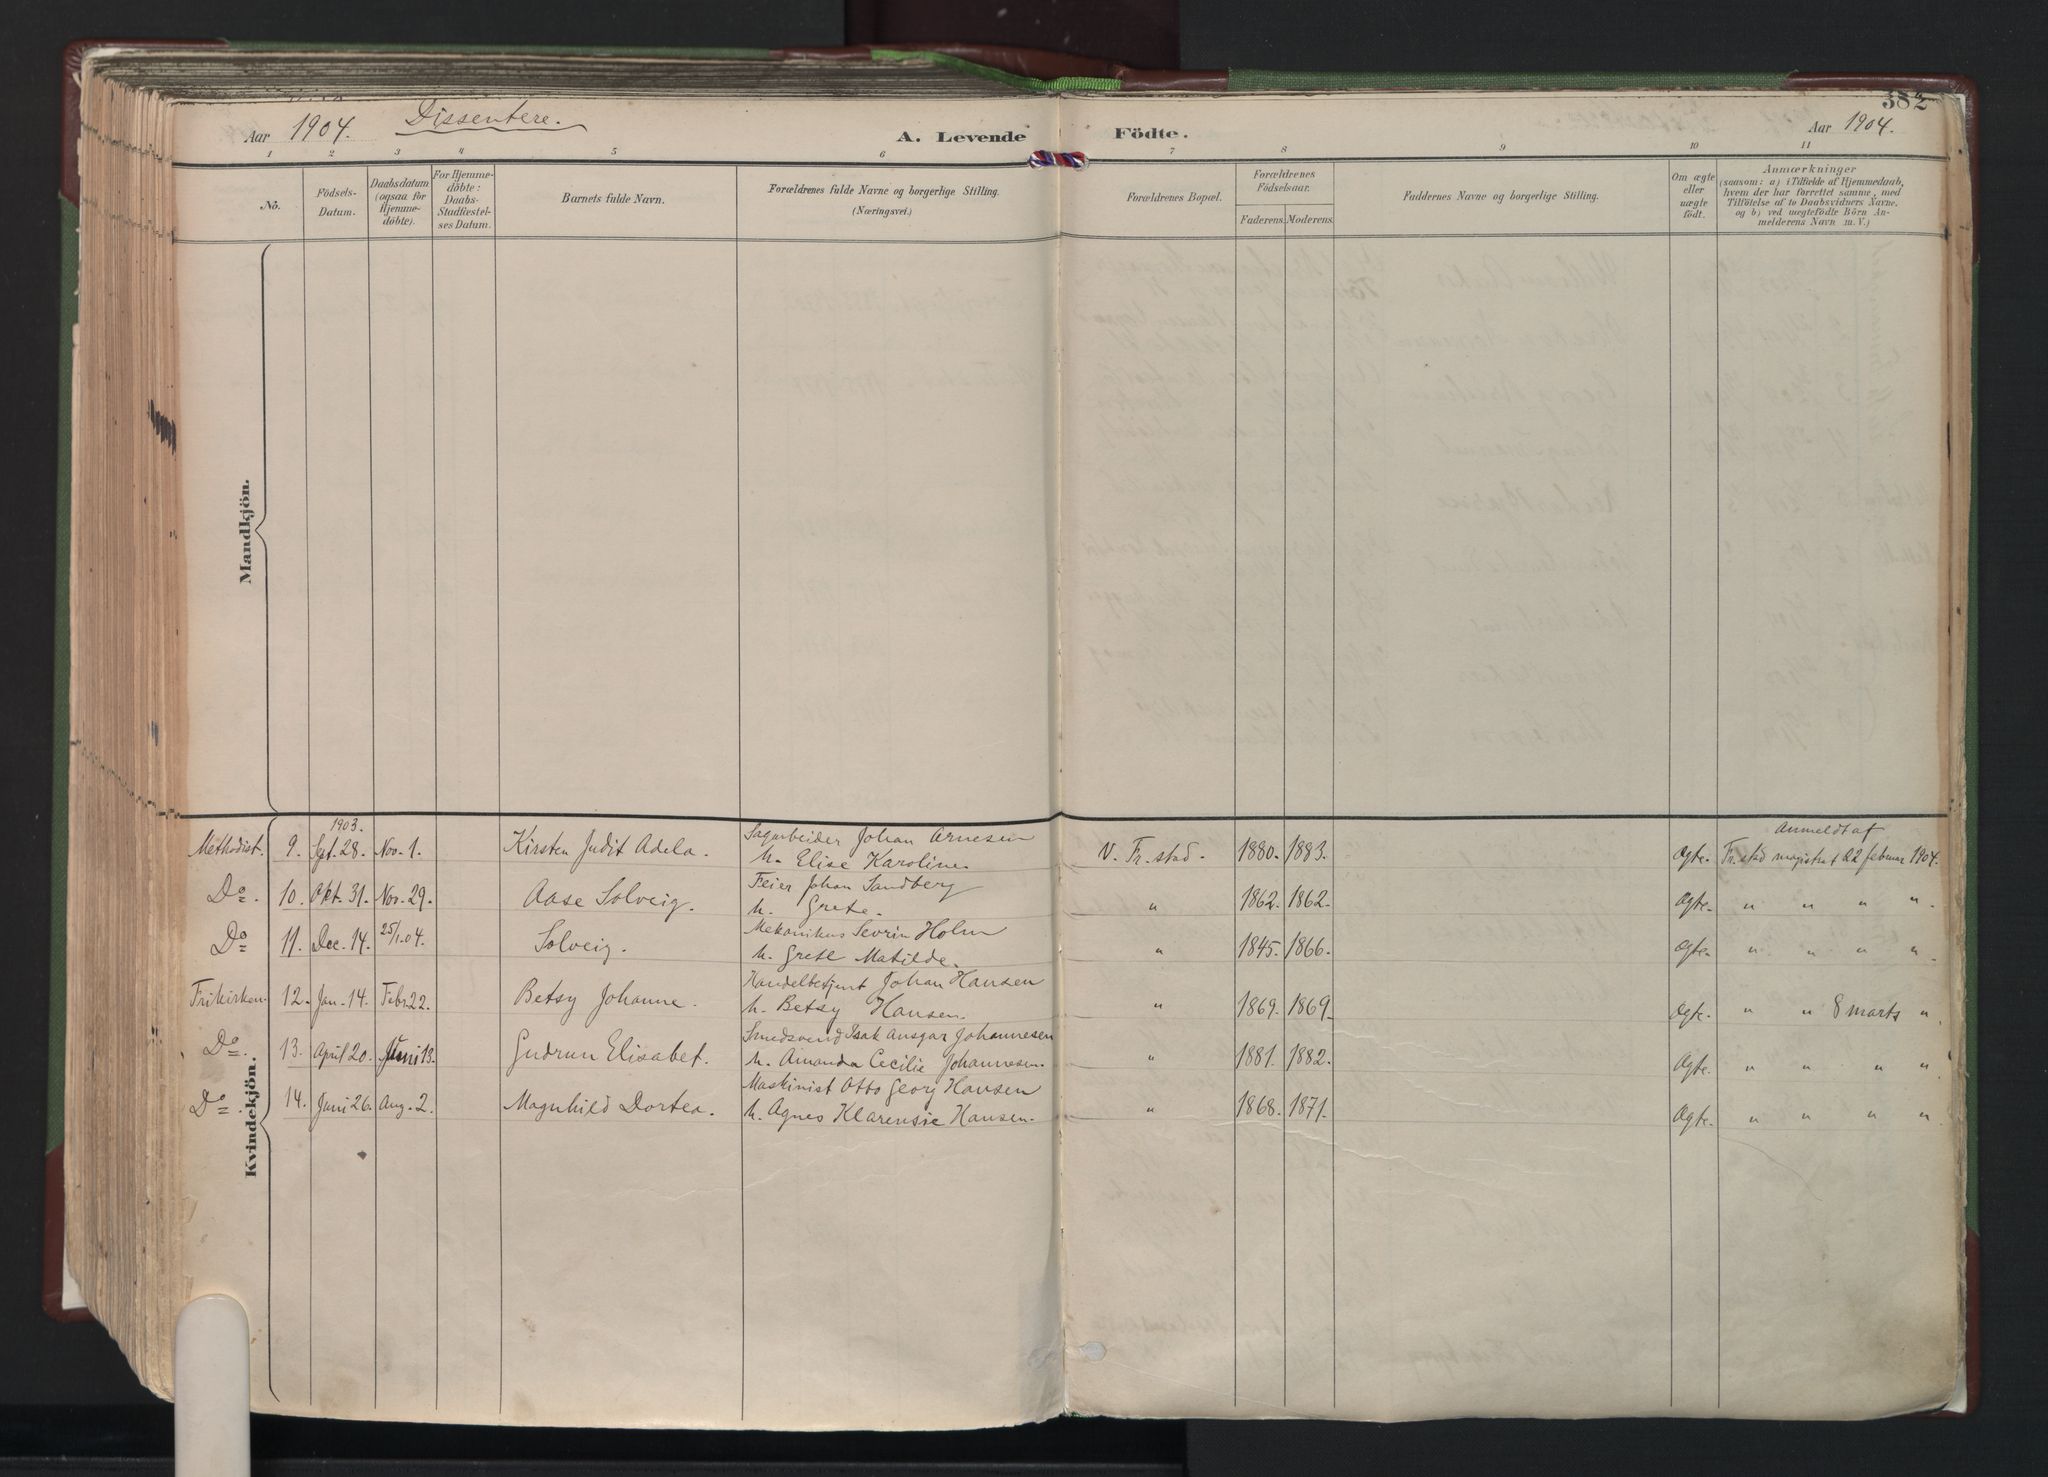 382
Aar 1904. Dissentere. A. Levende Födte. Aar 1904.
1 2 3 4 5 6 7 8 9 10 11
No.
Födsels-
Datum.
Daabsdatum
(ogsaa for
Hjemme-
döbte).
For Hjemme-
döbte:
Daabs-
Stadfæstel-
ses Datum.
Barnets fulde Navn.
Forældrenes fulde Navne og borgerlige Stilling.
(Næringsvei.)
Forældrenes Bopæl.
Forældrenes
Födselsaar.
Faderens. Moderens.
Faddernes Navne og borgerlige Stilling.
Om ægte
eller
uægte
födt.
Anmærkninger
(saasom: a) i Tilfælde af Hjemmedaab,
hvem der har forrettet samme, med
Tilföielse af to Daabsvidners Navne,
og b) ved uægtefödte Börn An-
melderens Navn m. V.)
Mandkjön.
Kvindekjön.
1903. Anmeldt af
Methodist. 9. Spt. 28. Nov. 1. Kirsten Judit Adela. Sagarbeider Johan Arnesen
h. Elise Karoline. V. Fr.stad. 1880. 1883. Ægte. Fr.stad magistrat 22 februar 1904.
Do. 10. Okt. 31. Nov. 29. Aase Solveig. Feier Johan Sandberg
h. Grete. " 1862. 1862. Ægte. " " " ".
Do 11. Dec. 14. 25/1.04. Solveig. Mekanikus Sevrin Holm
h. Grete Matilde. " 1845. 1866. Ægte. " " " "
Frikirken. 12. Jan. 14. Febr. 22. Betsy Johanne. Handelbetjent Johan Hansen
h. Betsy Hansen. " 1869. 1869. Ægte. " " 8 marts ".
Do. 13. April 20. Juni 13. Gudrun Elisabet. Smedsvend Isak Ansgar Johannesen
h. Amanda Cecilie Johannesen. " 1881. 1882. Ægte. " " " ".
Do. 14. Juni 26. Aug. 2. Magnhild Dortea. Maskinist Otto Georg Hansen
h. Agnes Klarensie Hansen. " 1868. 1871. Ægte. " " " "